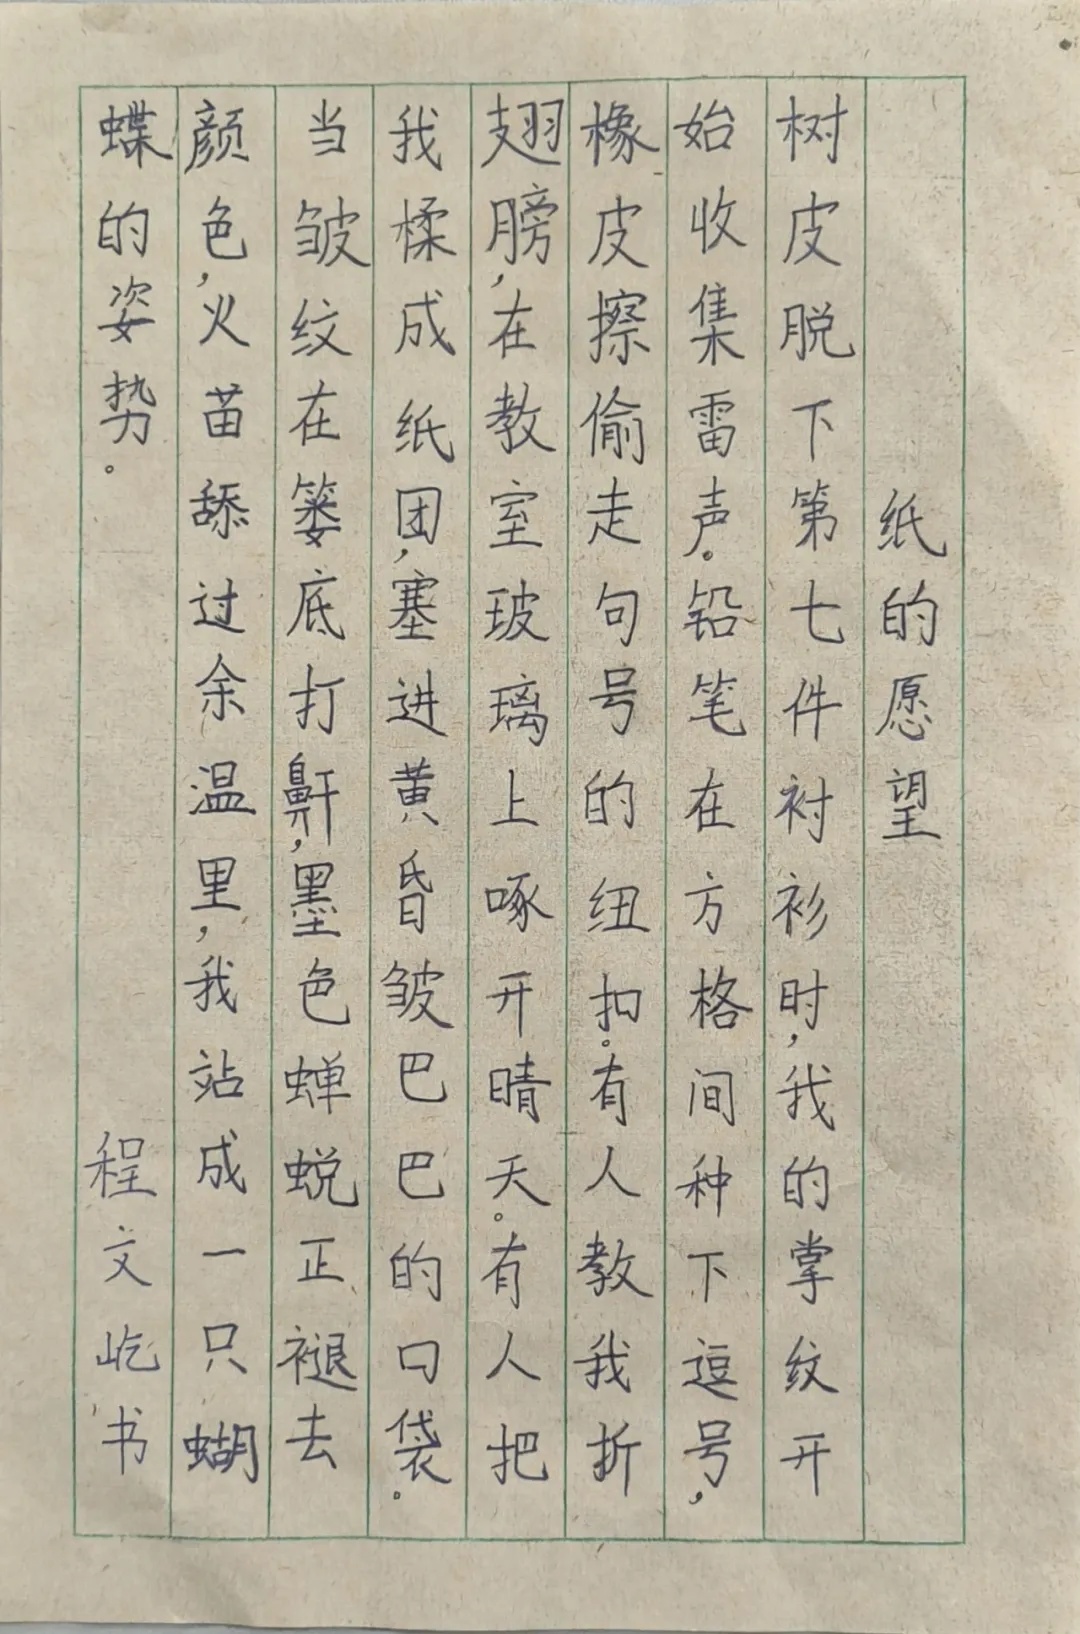 纸的愿望
树皮脱下第七件衬衫时,我的掌纹开
始收集雷声。铅笔在方格间种下逗号,
橡皮擦偷走句号的纽扣。有人教我折
翅膀,在教室玻璃上啄开晴天。有人把
我揉成纸团,塞进黄昏皱巴巴的口袋。
当皱纹在篓底打鼾,墨色蝉蜕正褪去
颜色,火苗舔过余温里,我站成一只蝴
蝶的姿势。 程文屹书